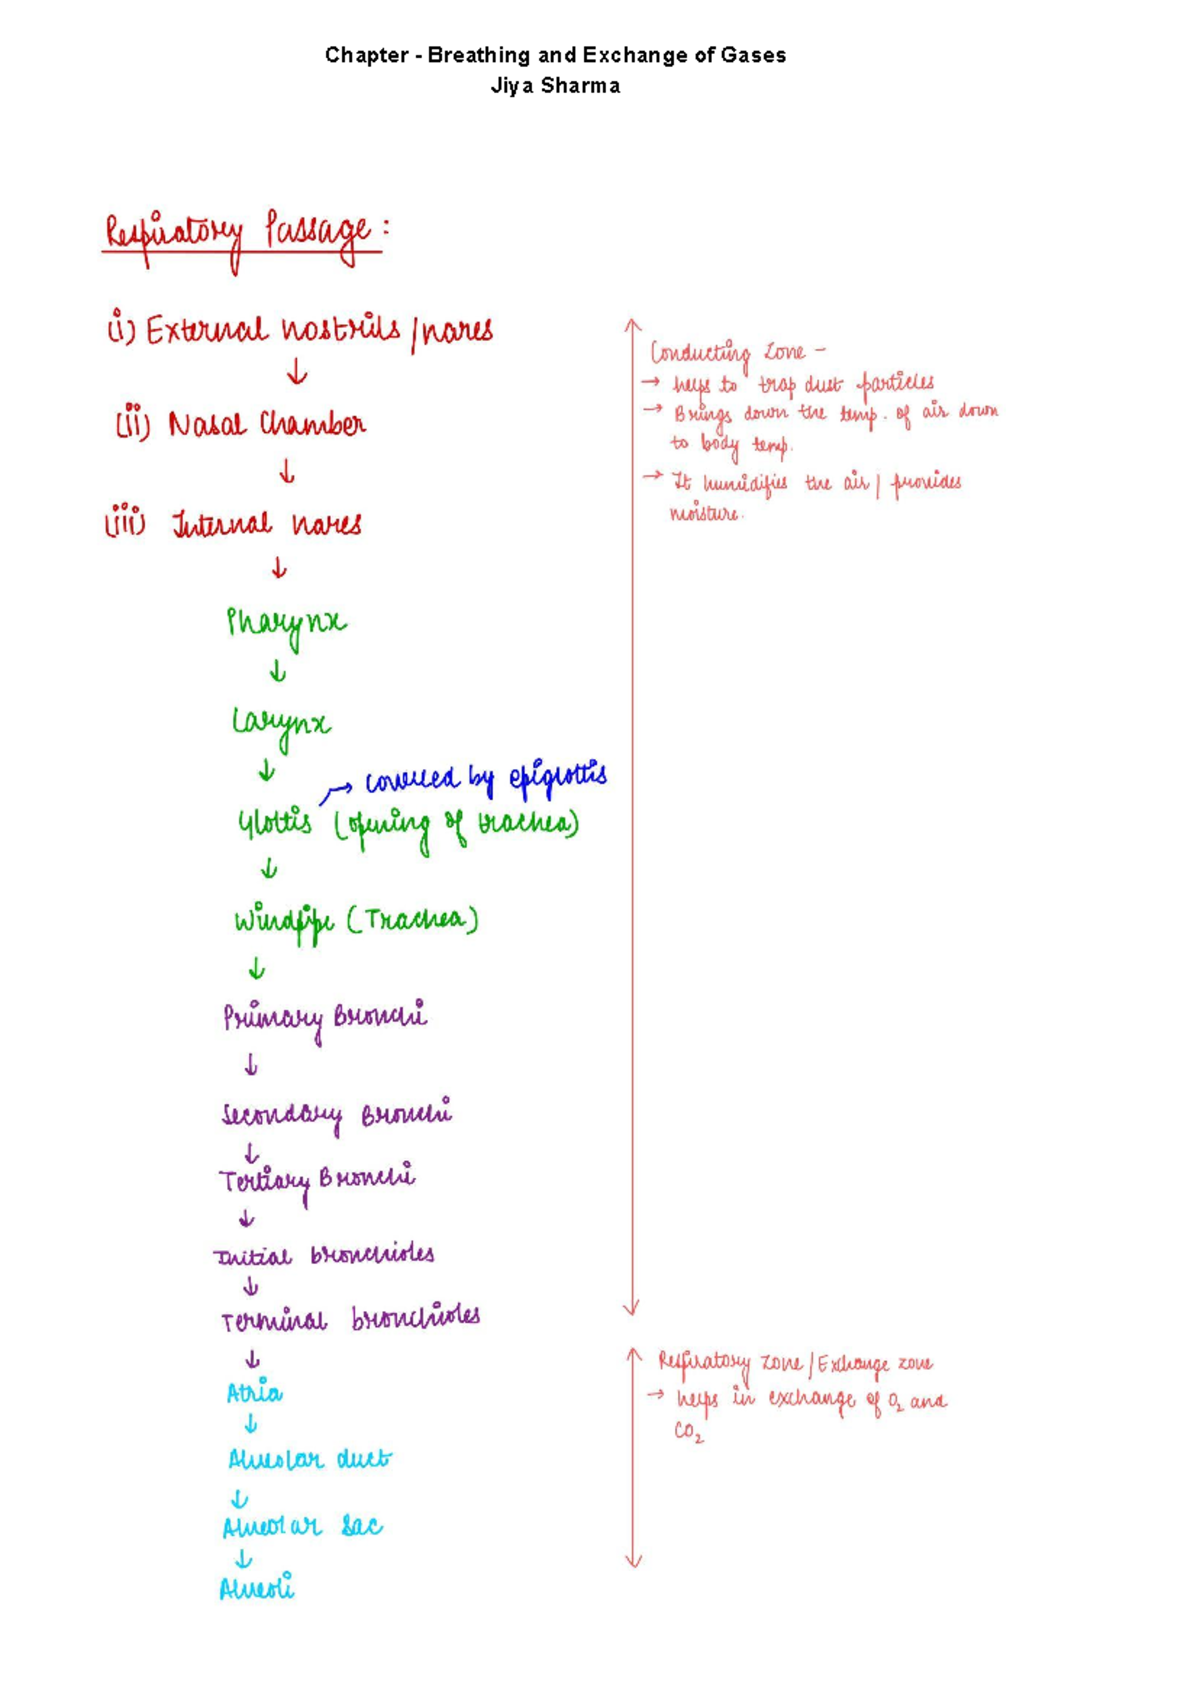 Chapter - Breathing and Exchange of Gases
Jiya Sharma
Respiratory Passage :
(i) External nostrils / nares
↓
(ii) Nasal Chamber
↓
(iii) Internal nares
↓
Pharynx
↓
Larynx
↓
→ covered by epiglottis
Glottis (opening of trachea)
↓
Windpipe (Trachea)
↓
Primary Bronchi
↓
Secondary Bronchi
↓
Tertiary Bronchi
↓
Initial bronchioles
↓
Terminal bronchioles
↓
Atria
↓
Alveolar duct
↓
Alveolar Sac
↓
Alveoli
Conducting Zone –
→ helps to trap dust particles
→ Brings down the temp. of air down
to body temp.
→ It humidifies the air / provides
moisture.
Respiratory zone / Exchange zone
→ helps in exchange of O₂ and
CO₂